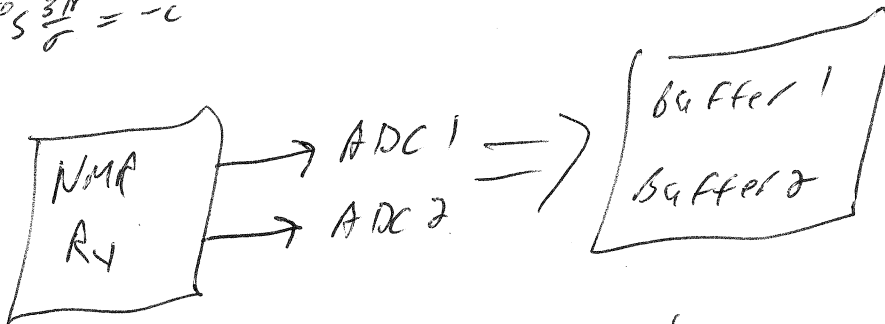 NMR
Rx
ADC 1
ADC 2
Buffer 1
Buffer 2